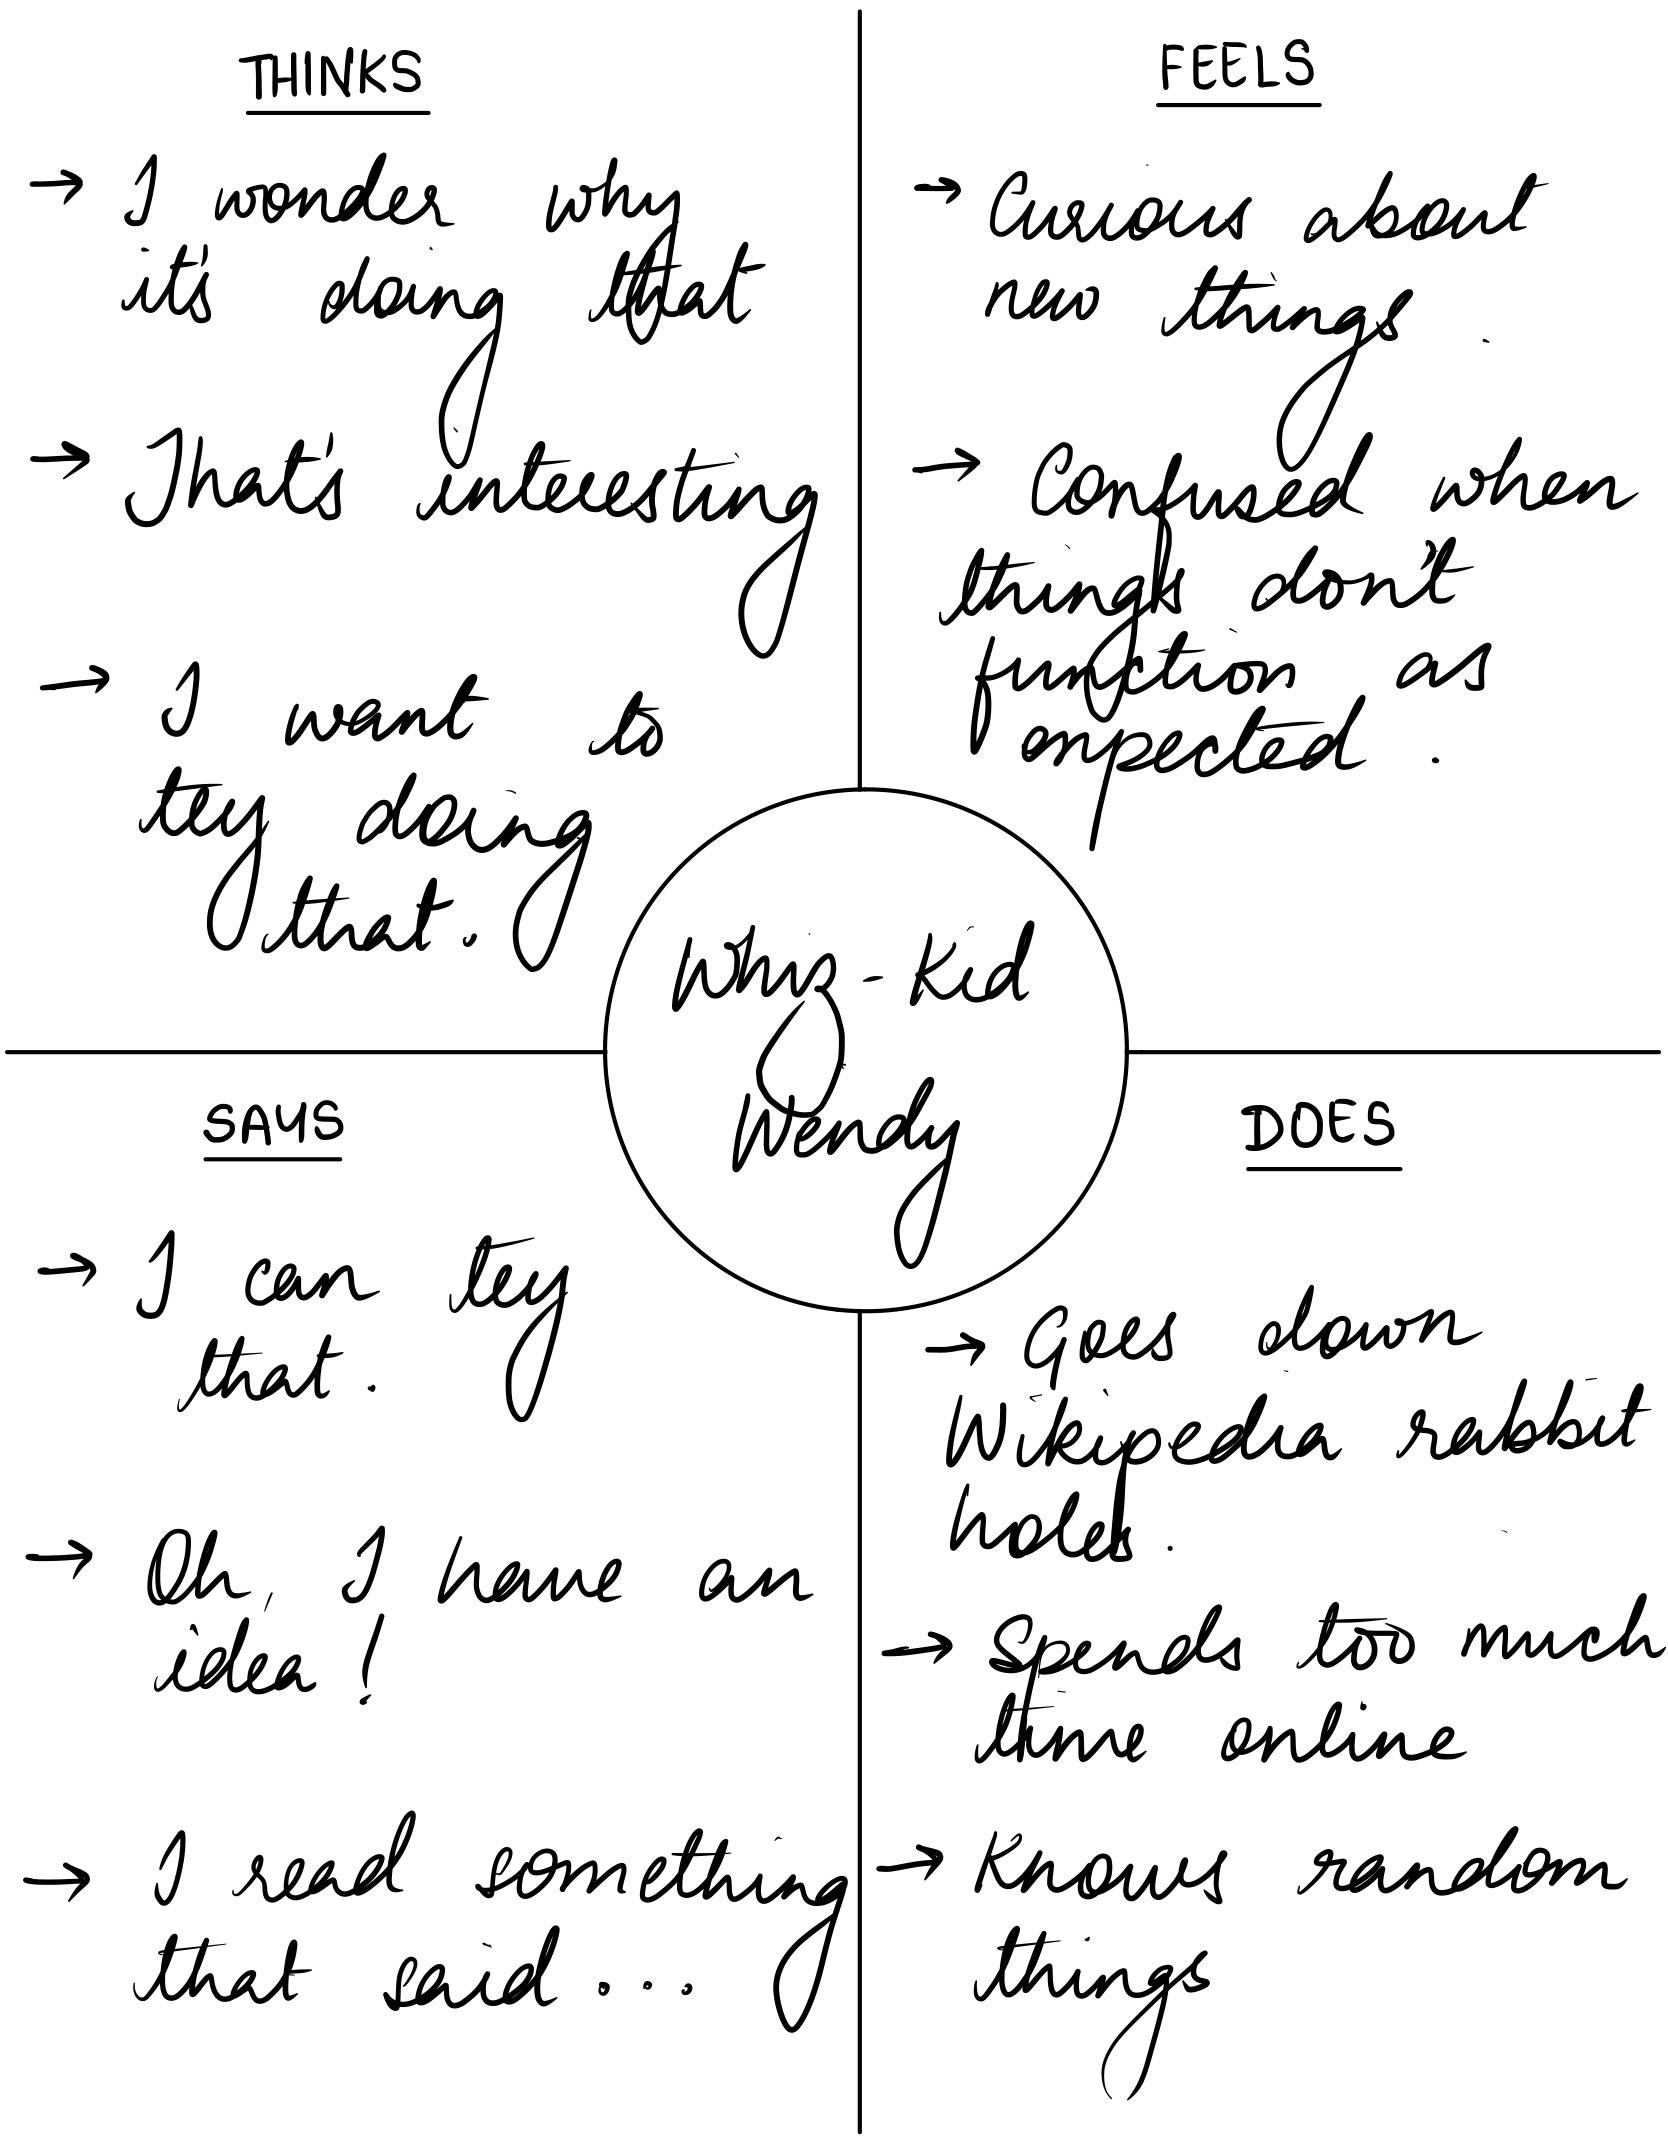 THINKS
→ I wonder why
it's doing that
→ That's interesting
→ I want to
try doing
that.
FEELS
→ Curious about
new things.
→ Confused when
things don't
function as
expected.
Whiz-Kid
Wendy
SAYS
→ I can try
that.
→ Oh, I have an
idea!
→ I read something
that said...
DOES
→ Goes down
Wikipedia rabbit
holes.
→ Spends too much
time online
→ Knows random
things